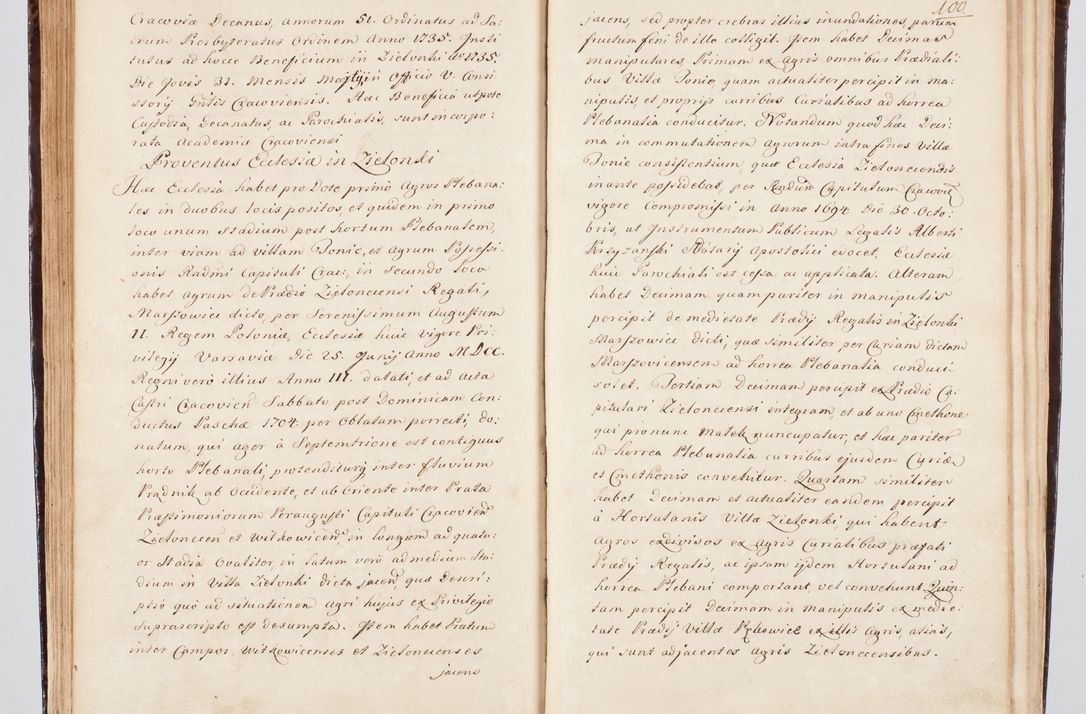 Cracoviæ Decanus, Annorum 51. Ordinatus ad Sa:
crum Presbyteratus Ordinem Anno 1735. Insti
tutus ad hocce Beneficium in Zielonki Ao 1735.
Die Jovis 31. Mensis Martij in Officio V. Consi
storij Gnlis Cracoviensis. Hæc Beneficia utpote
Custodia, Decanatus, ac Parochialis, sunt incorpo:
rata Academiæ Cracoviensi
Proventus Ecclesiæ in Zielonki
Hæc Ecclesia habet pro Dote primo Agros Plebana:
les in duobus locis positos, et quidem in primo
loco unum Stadium post hortum Plebanalem,
inter viam ad villam Tonie, et Agrum Possessi
onis Rndmi Capituli Crac: in Secundo loco
habet agrum de Prædio Zielonecensi Regali,
Marszowice dicto, per Serenissimum Augustum
II. Regem Poloniæ, Ecclesiæ huic vigore Pri:
vilegij Varsaviæ Die 25. Junij Anno MDCC.
Regni verò illius Anno III. datati, et ad Acta
Castri Cracovien Sabbato post Dominicam Con
ductus Paschæ 1704. per Oblatam porrecti, do:
natum, qui ager à Septemtrione est contiguus
horto Plebanali, protenditurq inter fluvium
Prądnik ab Occidente, et ab Oriente inter Prata
Præstimoniorum Peraugusti Capituli Cracovien
Zielonecen et Witkowicen, in longum ad quatu:
or Stadia Ovaliter, in latum verò ad medium Sta:
dium in Villa Zielonki dicta jacen, quæ Descri:
ptio quò ad situationem agri hujus ex Privilegio
suprascripto est desumpta. Item habet Pratum
inter Campos Witkowicenses et Zielonecenses
jacens
100
jacens, sed propter crebras illius inundationes, parum
fructum foni de illo colligit. Item habet Decimas
manipulares, Primam ex Agris omnibus Prædiali:
bus Villæ Tonie, quam actualiter percipit in ma:
nipulis, et proprijs curribus Curialibus ad horrea
Plebanalia conducitur. Notandum quod hæc Deci:
ma in commutationem Agrorum intra fines Villæ
Tonie consistentium, quæ Ecclesia Zielonecensis
in ante possidebat, per Rndum Capitulum Cracovien
vigore Compromissi in Anno 1694 Die 30. Octo:
bris, ut Instrumentum Publicum Legalis Alberti
Krzyzanski Notarij Apostolici edocet, Ecclesiæ
huic Parochiali est cessa ac applicata. Alteram
habet Decimam quam pariter in manipulis
percipit de medietate Prædij Regalis in Zielonki
Marszowice dicti, quæ similiter per Curiam dictam
Marszovicensem ad horrea Plebanalia conduci
solet. Tertiam Decimam percipit ex Prædio Ca:
pitulari Zielonecensi integram, et ab uno Cmethone
qui pronunc Małek nuncupatur, et hæc pariter
ad horrea Plebanalia curribus ejusdem Curiæ
et Cmethonis convehitur. Quartam similiter
habet Decimam et actualiter eandem percipit
à Hortulanis Villæ Zielonki, qui habent
Agros exdivisos ex Agris Curialibus præfati
Prædij Regalis, ac ipsam ijdem Hortulani ad
horrea Plebani comportant, vel convehunt. Quin:
tam percipit Decimam in manipulis ex medie:
tate Prædij Villæ ex illis Agris, alias,
qui sunt adjacentes Agris Zielonecensibus.